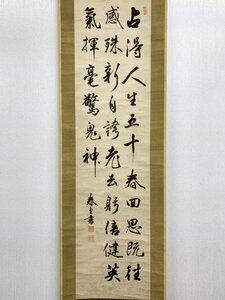 占得人生五十春回思既往
感殊新自誇老去躬倍健英
氣揮毫驚鬼神